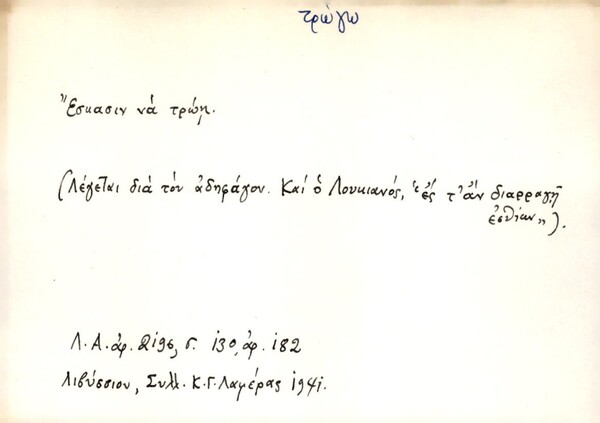 τρώγω
Ἔσκασιν νά τρώῃ.
(Λέγεται διά τόν ἀδηφάγον. Καί ὁ Λουκιανός, «ἔς τ' ἄν διαρραγῇ
ἐσθίων»).
Λ.Α. ἀρ. 2196, σ. 130, ἀρ. 182
Λιβύσσιον, Συλλ. Κ.Γ. Λαμέρας 1941.